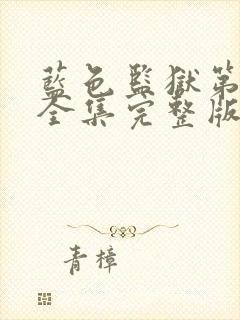 藍色監獄第
全集完整版
青樟